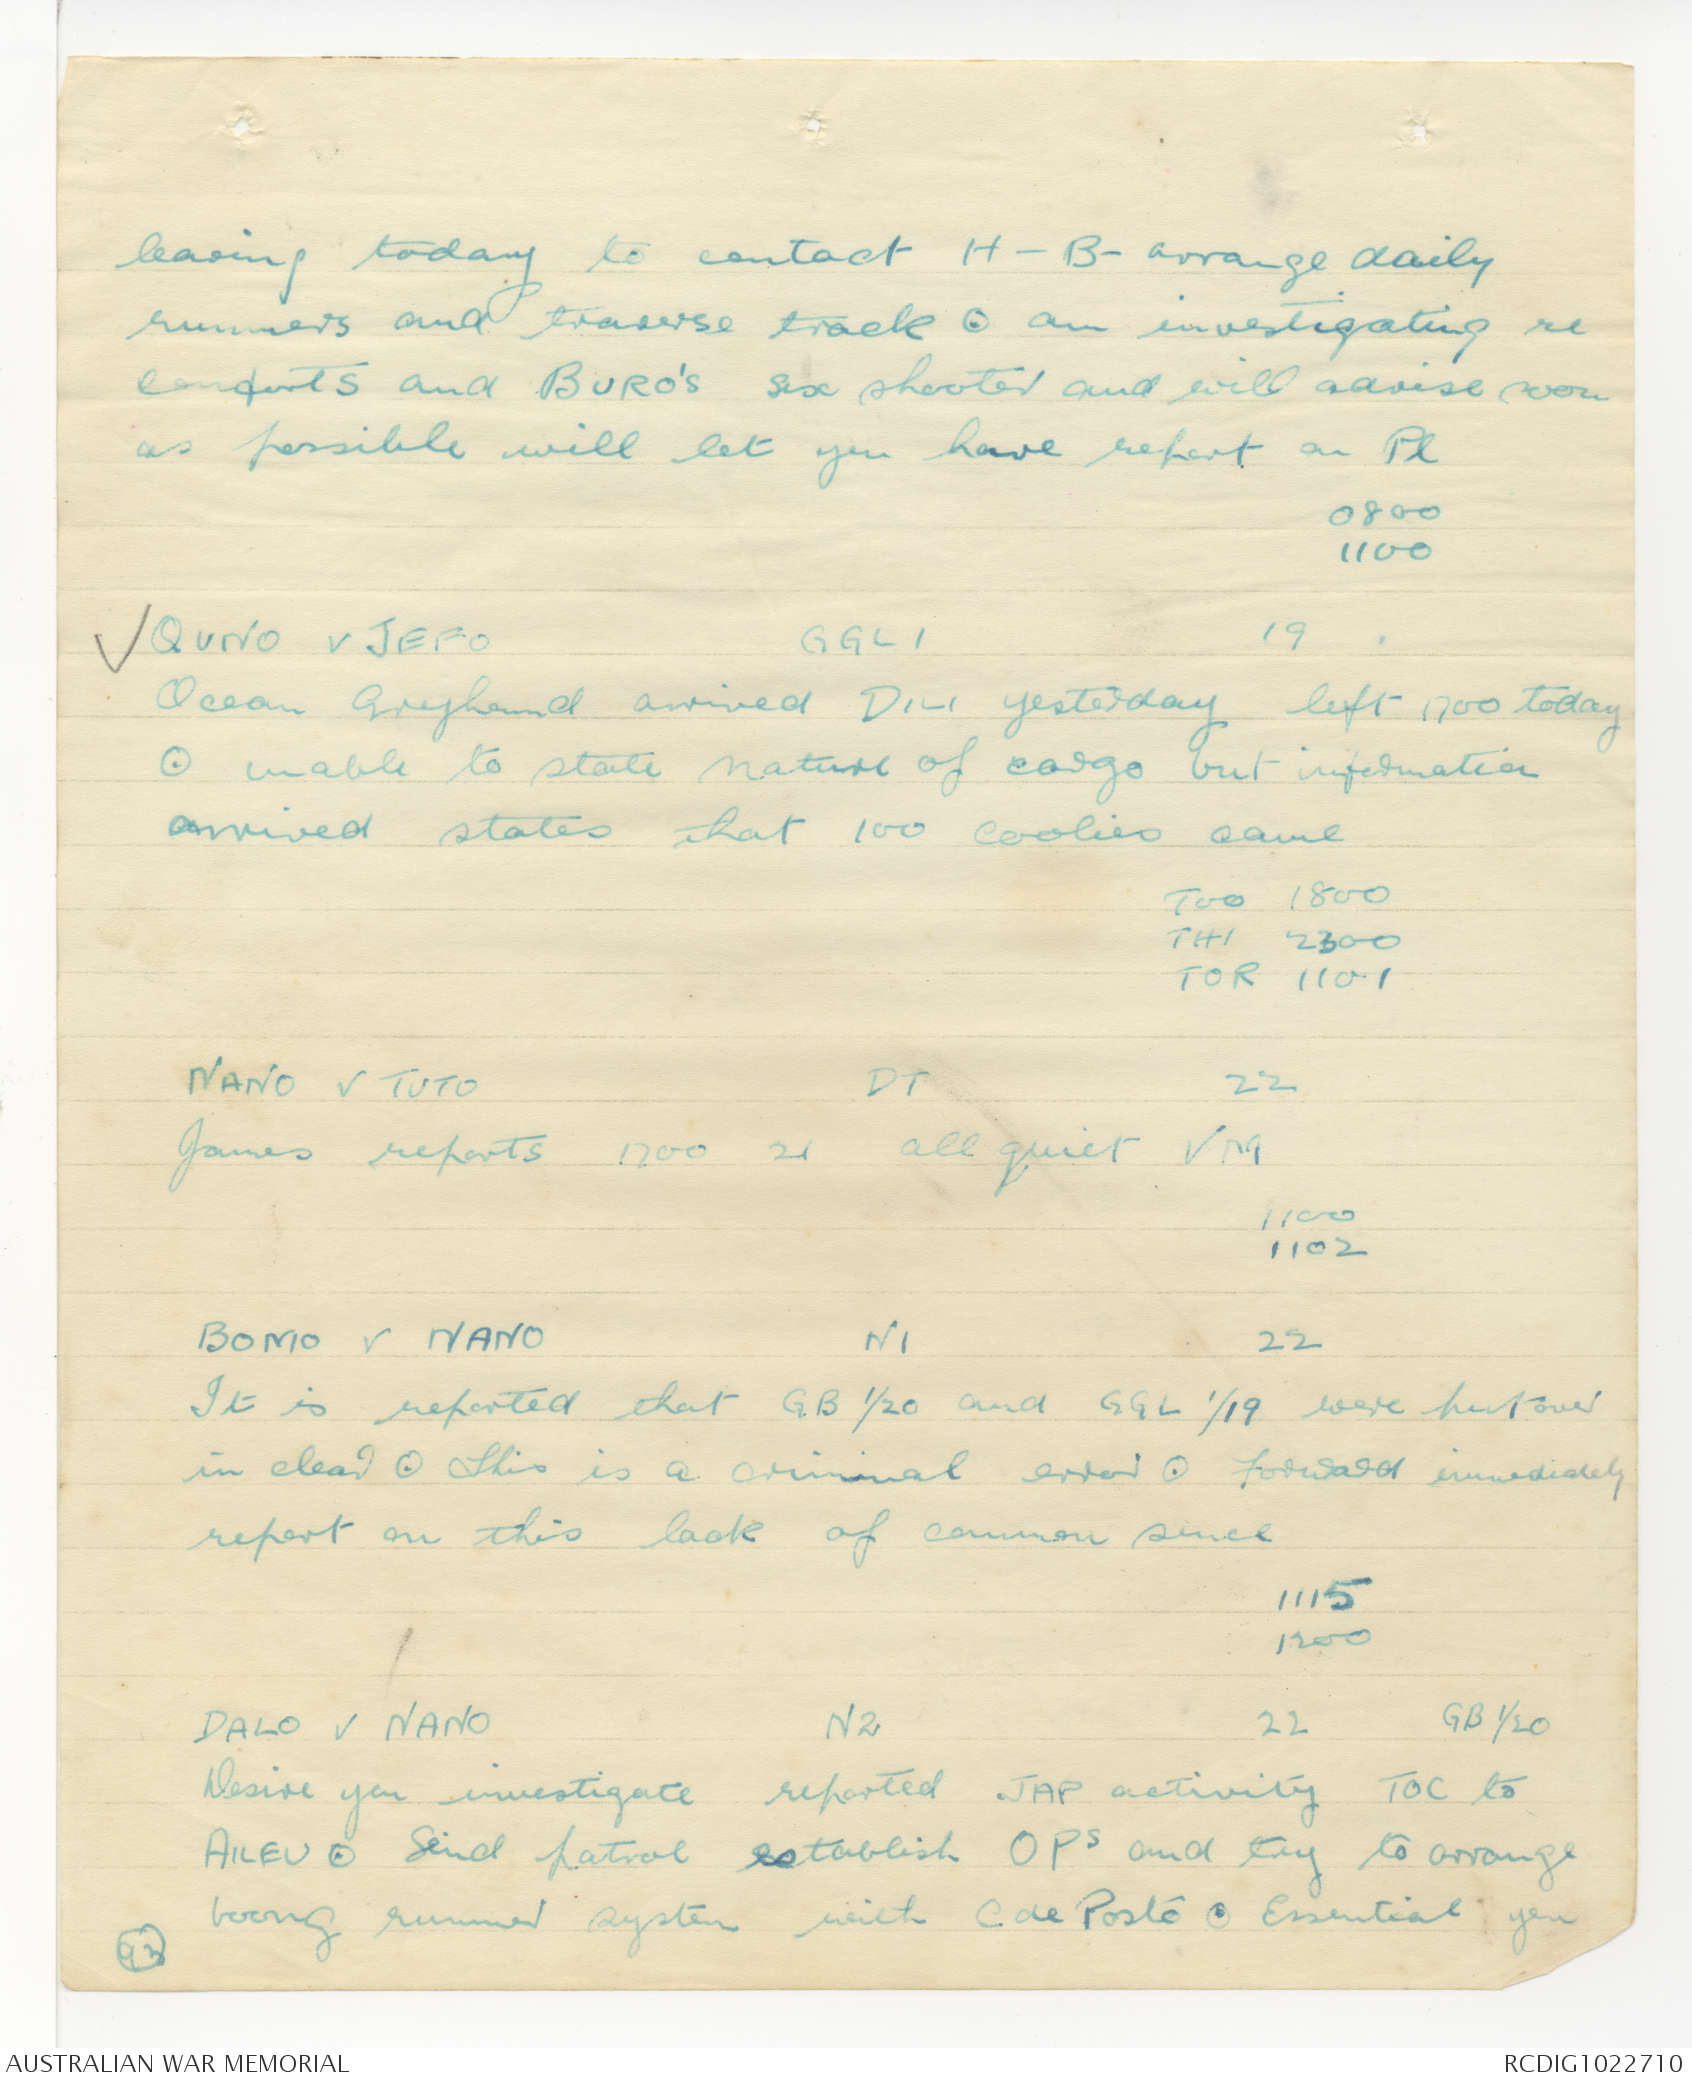 leaving today to contact H - B - arrange daily
runners and traverse track ⊙ am investigating re
comforts and BURO'S six shooter and will advise soon
as possible will let you have report on Pl
0800
1100
✓ QUNO V JEFO GGL 1 19
Ocean Greyhound arrived DILI yesterday left 1700 today
⊙ unable to state nature of cargo but information
arrived states that 100 coolies came
TOO 1800
THI 2300
TOR 1101
NANO V TUTO DT 22
James reports 1700 21 all quiet
1100
1102
BONO V NANO N1 22
It is reported that GB 1/20 and GGL 1/19 were put over
in clear ⊙ This is a criminal error ⊙ Forward immediately
report on this lack of common sence
1115
1200
DALO V NANO N2 22 GB 1/20
Desire you investigate reported JAP activity TOC to
AILEU ⊙ Send patrol establish OPs and try to arrange
boong runner system with C de Posto ⊙ Essential you
93
AUSTRALIAN WAR MEMORIAL
RCDIG1022710